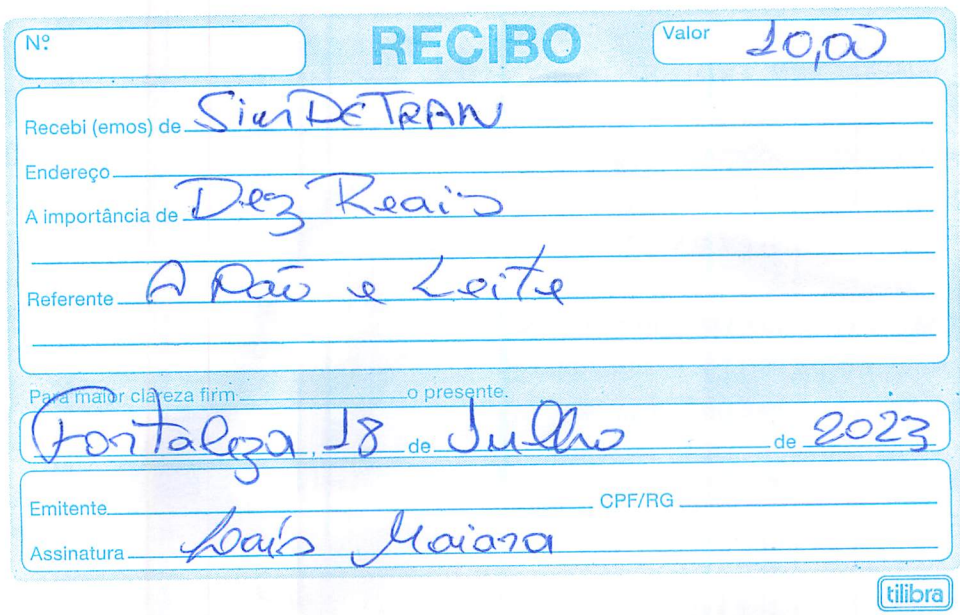 Nº RECIBO Valor 10,00
Recebi (emos) de SinDETRAN
Endereço
A importância de Dez Reais
Referente A Pão e Leite
Para maior clareza firm o presente.
Fortaleza, 18 de Julho de 2023
Emitente CPF/RG
Assinatura Laís Maiara
tilibra